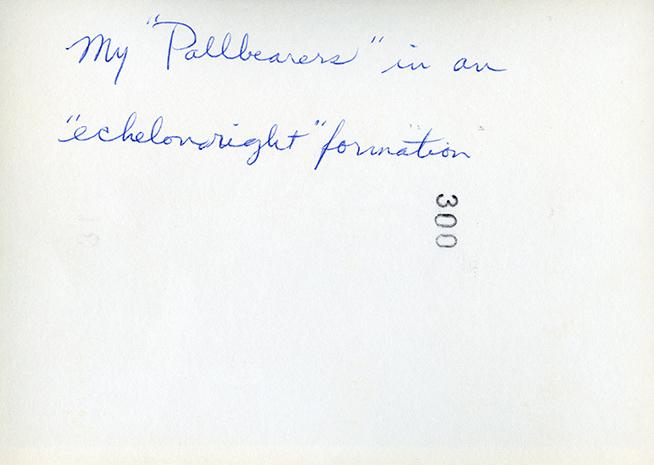 My "Pallbearers" in an
"echelon right" formation
300